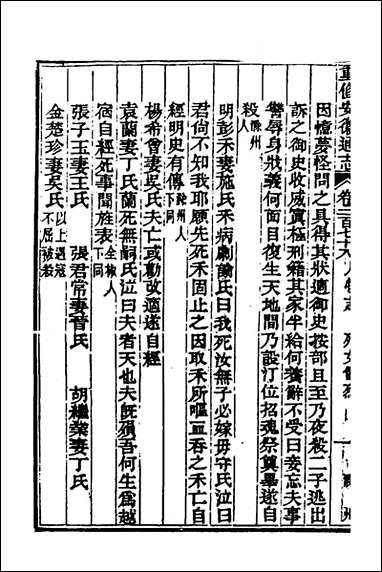 重修安徽通志 卷二百七十八 人物志
因憶夢怪問之具得其狀適御史按部且至乃夜殺二子逃出
訴之御史收威寘極刑籍其家半給何養辭不受曰妾忘夫事
讐辱身狀義何面目復生天地間乃設汀位招魂祭奠畢遂自
殺滁州人
明彭禾妻施氏禾病劇諭氏曰我死汝無子必嫁毋守氏泣曰
君尚不知我耶願先死禾固止之因取禾所嘔血吞之禾亡自
經明史有傳滁州人下同
楊希曾妻吳氏夫亡或勸改適遂自經
袁蘭妻丁氏蘭死無嗣氏泣曰夫者天也夫旣殞吾何生爲越
宿自經死事聞旌表全椒人下同
張子玉妻王氏 張君常妻晉氏 胡繼業妻丁氏
金楚珍妻吳氏以上遇寇不屈被殺